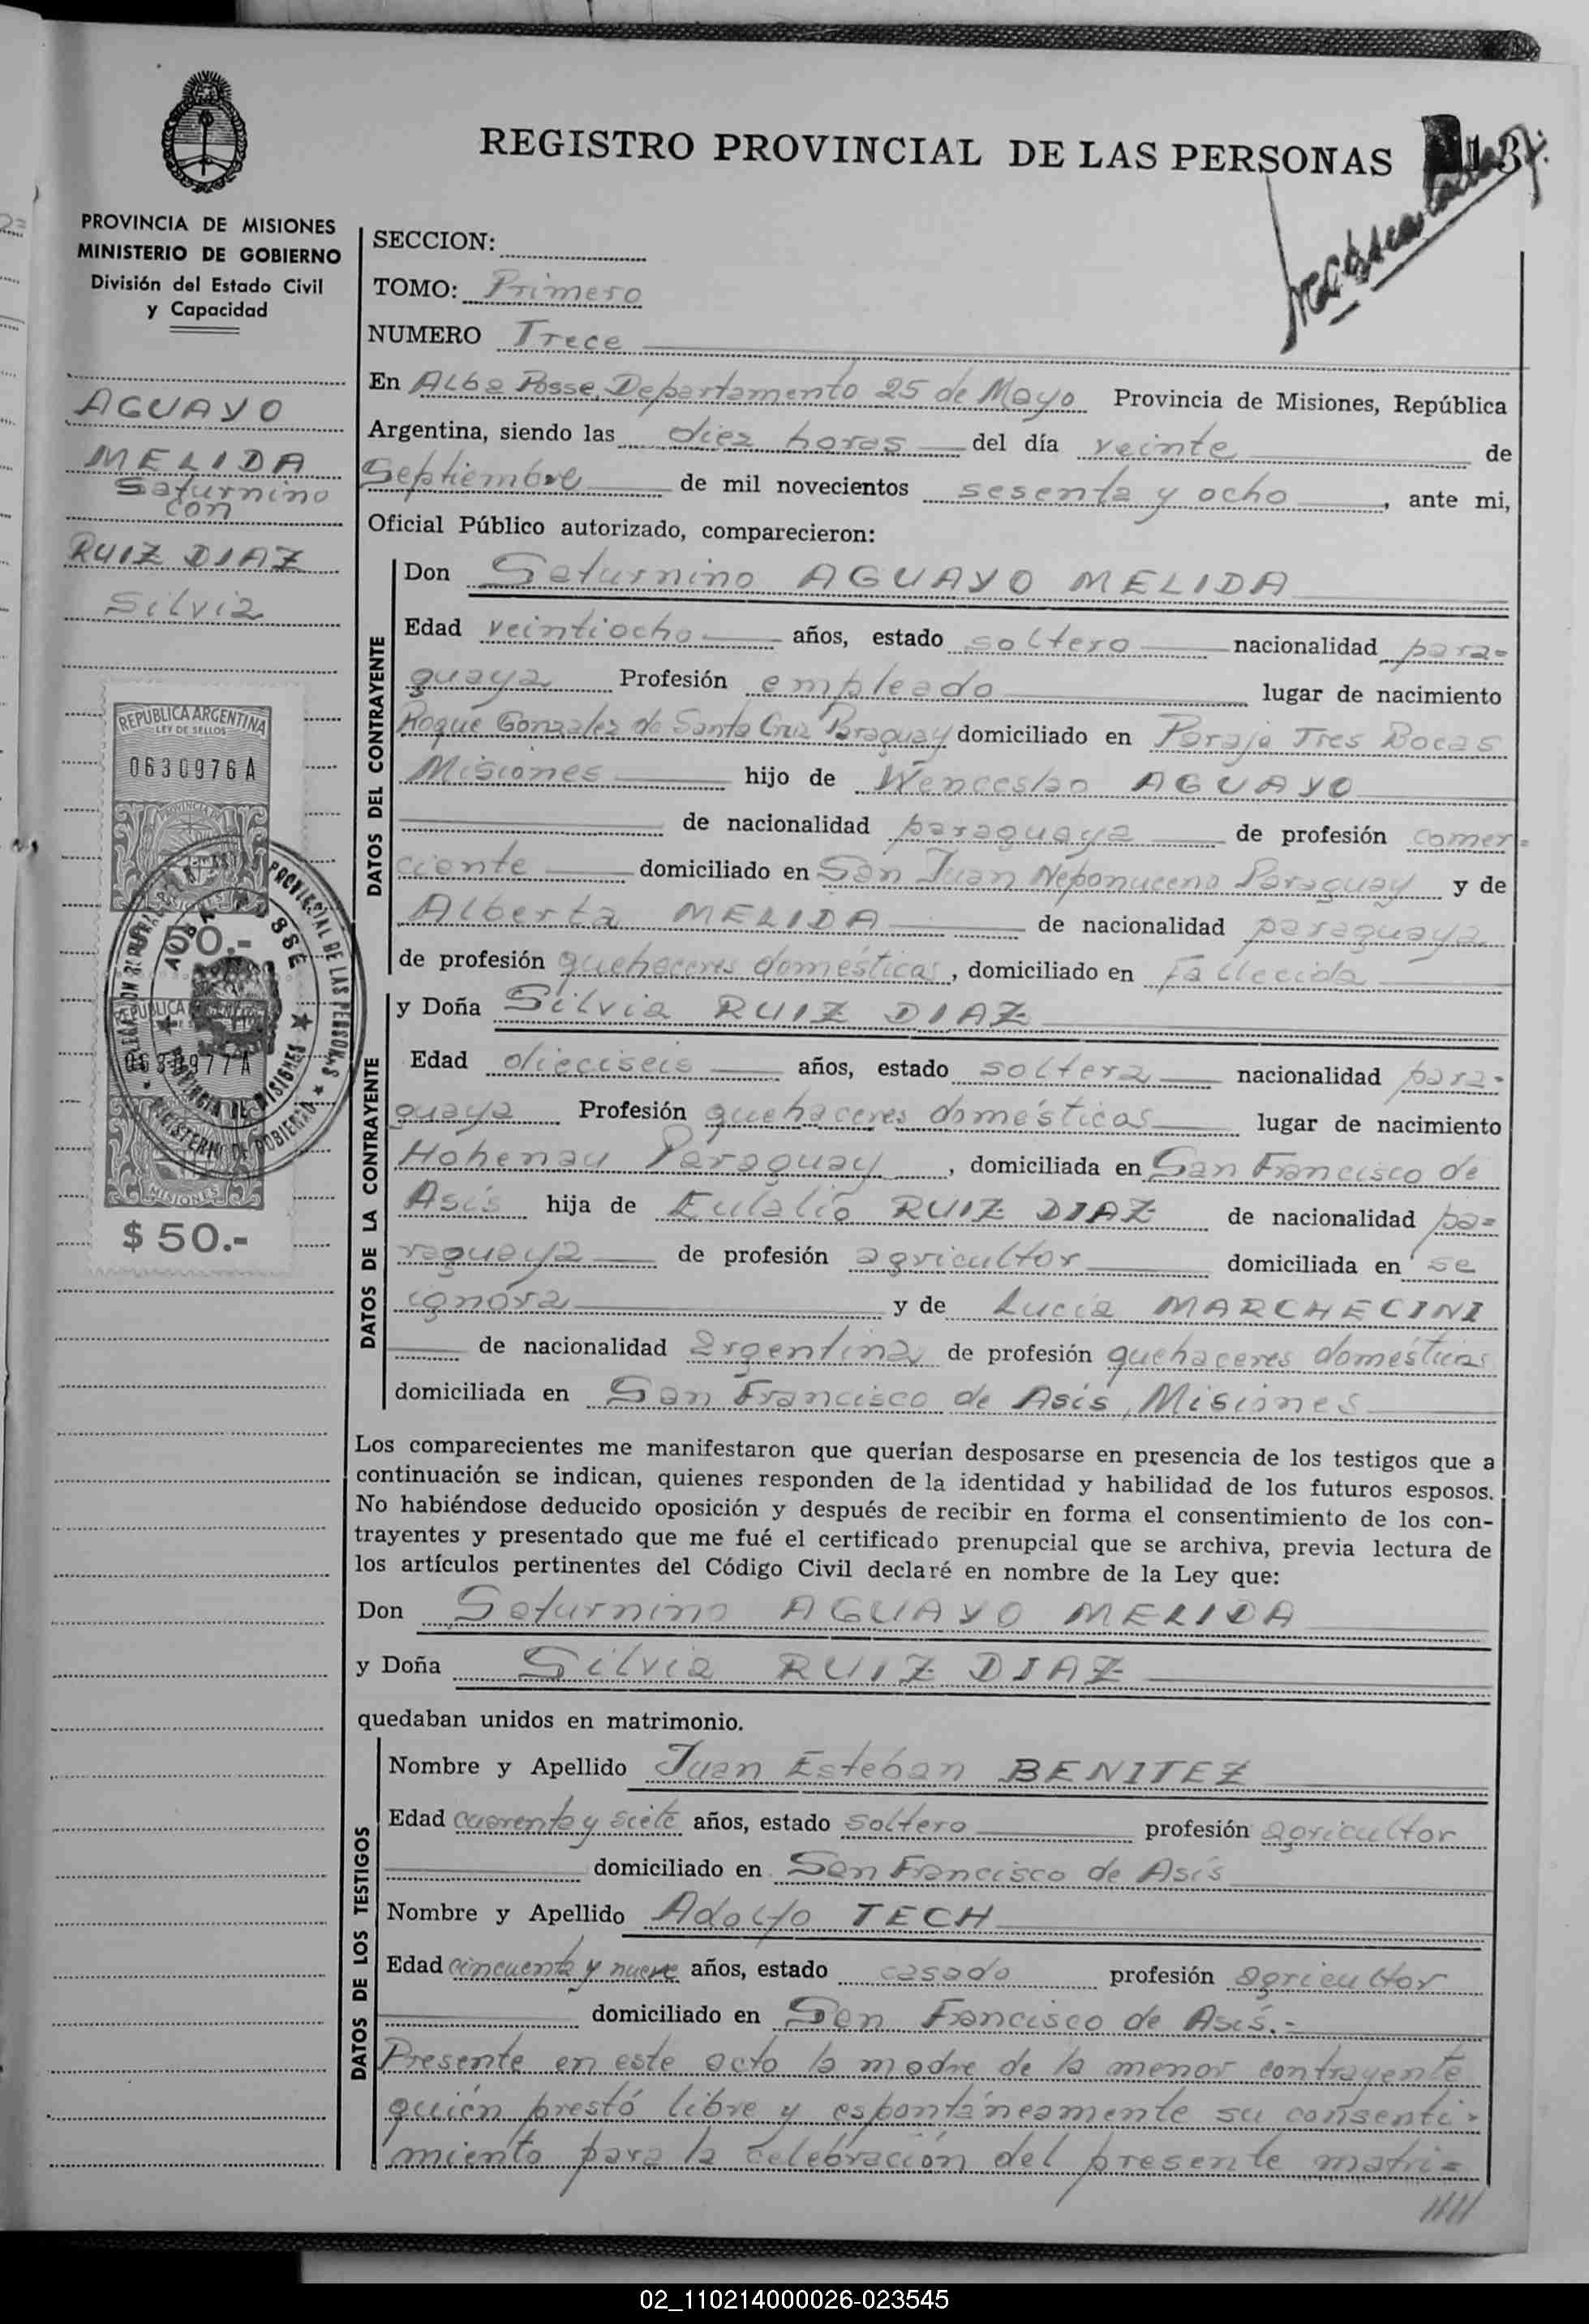 REGISTRO PROVINCIAL DE LAS PERSONAS
PROVINCIA DE MISIONES
MINISTERIO DE GOBIERNO
División del Estado Civil
y Capacidad
AGUAYO
MELIDA
Saturnino
con
RUIZ DIAZ
Silvia
REPUBLICA ARGENTINA
LEY DE SELLOS
0630976A
50.-
0630977A
MISIONES
$ 50.-
SECCION:
TOMO: Primero
NUMERO Trece
En Alba Posse, Departamento 25 de Mayo Provincia de Misiones, República
Argentina, siendo las diez horas del día veinte de
Septiembre de mil novecientos sesenta y ocho, ante mi,
Oficial Público autorizado, comparecieron:
DATOS DEL CONTRAYENTE
Don Saturnino AGUAYO MELIDA
Edad veintiocho años, estado soltero nacionalidad para=
guaya Profesión empleado lugar de nacimiento
Roque Gonzalez de Santa Cruz Paraguay domiciliado en Paraje Tres Bocas
Misiones hijo de Wenceslao AGUAYO
de nacionalidad paraguaya de profesión comer=
ciante domiciliado en San Juan Neponuceno Paraguay y de
Alberta MELIDA de nacionalidad paraguaya
de profesión quehaceres domésticas, domiciliado en Fallecida
DATOS DE LA CONTRAYENTE
y Doña Silvia RUIZ DIAZ
Edad dieciseis años, estado soltera nacionalidad para-
guaya Profesión quehaceres domésticos lugar de nacimiento
Hohenau Paraguay, domiciliada en San Francisco de
Asís hija de Eulalio RUIZ DIAZ de nacionalidad pa=
raguaya de profesión agricultor domiciliada en se
ignora y de Lucía MARCHECINI
de nacionalidad argentina de profesión quehaceres domésticos
domiciliada en San Francisco de Asís, Misiones
Los comparecientes me manifestaron que querían desposarse en presencia de los testigos que a
continuación se indican, quienes responden de la identidad y habilidad de los futuros esposos.
No habiéndose deducido oposición y después de recibir en forma el consentimiento de los con-
trayentes y presentado que me fué el certificado prenupcial que se archiva, previa lectura de
los artículos pertinentes del Código Civil declaré en nombre de la Ley que:
Don Saturnino AGUAYO MELIDA
y Doña Silvia RUIZ DIAZ
quedaban unidos en matrimonio.
DATOS DE LOS TESTIGOS
Nombre y Apellido Juan Esteban BENITEZ
Edad cuarenta y siete años, estado soltero profesión agricultor
domiciliado en San Francisco de Asís
Nombre y Apellido Adolfo TECH
Edad cincuenta y nueve años, estado casado profesión agricultor
domiciliado en San Francisco de Asís.-
Presente en este acto la madre de la menor contrayente
quién prestó libre y espontáneamente su consenti-
miento para la celebración del presente matri=
02_110214000026-023545